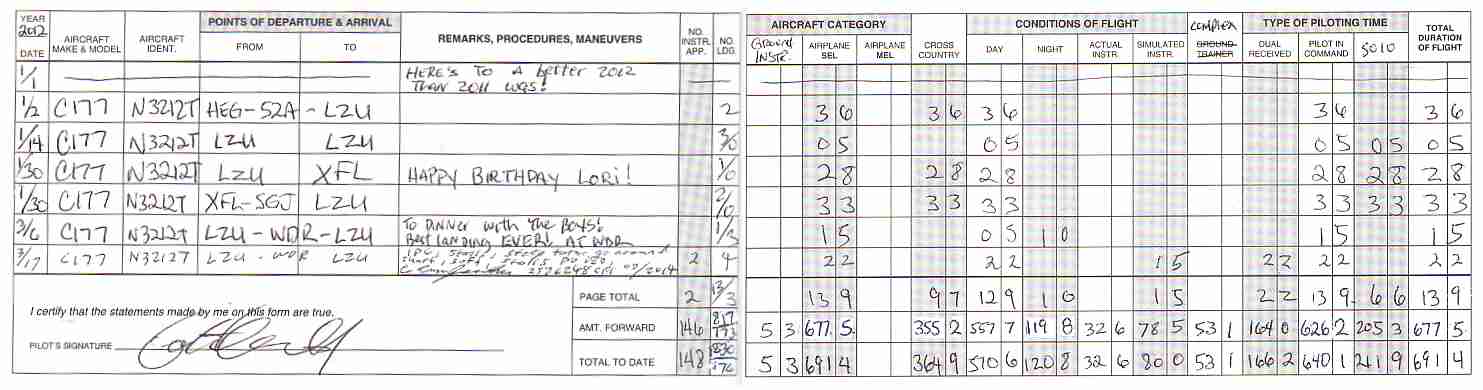 YEAR 2012 DATE AIRCRAFT MAKE & MODEL AIRCRAFT IDENT. POINTS OF DEPARTURE & ARRIVAL FROM TO REMARKS, PROCEDURES, MANEUVERS NO. INSTR. APP. NO. LDG. GROUND INSTR. AIRCRAFT CATEGORY AIRPLANE SEL AIRPLANE MEL CROSS COUNTRY CONDITIONS OF FLIGHT DAY NIGHT ACTUAL INSTR. SIMULATED INSTR. COMPLEX GROUND TRAINER TYPE OF PILOTING TIME DUAL RECEIVED PILOT IN COMMAND SOLO TOTAL DURATION OF FLIGHT
1/1 HERE'S TO A better 2012
THAN 2011 WAS!
1/2 C177 N3212T HEG-52A - LZU 2 3 6 3 6 3 6 3 6 3 6
1/14 C177 N3212T LZU LZU 3/0 0 5 0 5 0 5 0 5 0 5
1/30 C177 N3212T LZU XFL HAPPY BIRTHDAY LORI! 1/0 2 8 2 8 2 8 2 8 2 8 2 8
1/30 C177 N3212T XFL-SGJ LZU 2/0 3 3 3 3 3 3 3 3 3 3 3 3
3/6 C177 N3212T LZU-WDR-LZU To Dinner with the Boys! 1/3 1 5 0 5 1 0 1 5 1 5
Best landing EVER! AT WDR
3/17 C177 N3212T LZU - WDR LZU IPC, stalls, steep turns, go around 2 4 2 2 2 2 1 5 2 2 2 2 2 2
I certify that the statements made by me on this form are true.
PILOT'S SIGNATURE
PAGE TOTAL 2 13/3 13 9 9 7 12 9 1 0 1 5 2 2 13 9 6 6 13 9
AMT. FORWARD 146 5 3 677 5 355 2 557 7 119 8 32 6 78 5 53 1 164 0 626 2 205 3 677 5
TOTAL TO DATE 148 5 3 691 4 364 9 570 6 120 8 32 6 80 0 53 1 166 2 640 1 211 9 691 4